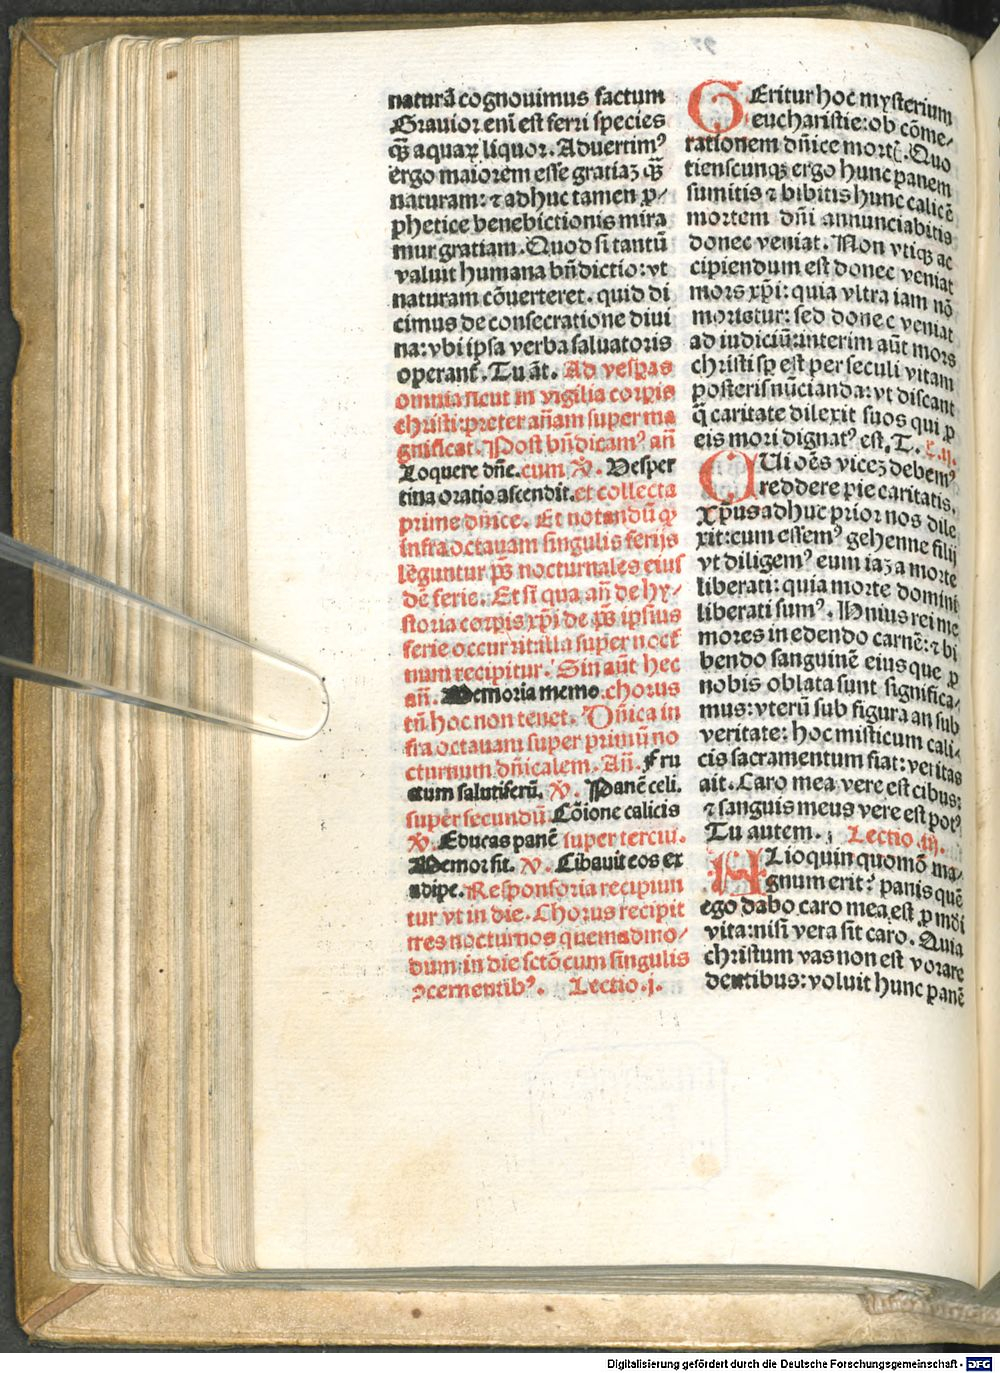 naturā cognouimus factum
Grauior. enī est ferri species
q̄ȝ aquaꝝ liquor. Aduertimꝰ
ergo maiorem esse gratiaȝ q̄ȝ
naturam: ⁊ adhuc tamen ꝓ⸗
phetice benedictionis mira
mur gratiam. Quod si tantū
valuit humana bn̄dictio: vt
naturam cōuerteret. quid di
cimus de consecratione diui
na: vbi ipsa verba saluatoris
operant᷑. Tu āt. Ad vesꝑas
omnia sicut in vigilia corꝑis
christi: preter añam super ma
gnificat. Post bn̄dicamꝰ añ
Loquere dn̄e. cum ℣. Vesper
tina oratio ascendit. et collecta
prime dn̄ice. Et notandū ꝙ
infra octauam singulis ferijs
lēguntur p̄s nocturnales eius
dē ferie. Et si qua añ de hy⸗
storia corꝑis xp̄i de p̄s ipsius
ferie occurrit illa super noct᷑
num recipitur. Sin aūt hec
añ. Memoria memo. chorus
tū hoc non tenet. Dn̄ica in
fra octauam super primū no
cturnum dn̄icalem. Añ. Fru
ctum salutiferū. ℣. Panē celi.
super secundū. Cōione calicis
℣. Educas panē super terciū.
Memor sit. ℣. Cibauit eos ex
adipe. Responsoria recipiun
tur vt in die. Chorus recipit
tres nocturnos quemadmo⸗
dum in die sctō cum singulis
ꝯcernentibꝰ. Lectio .j.
GEritur hoc mysterium
eucharistie: ob cōme⸗
rationem dn̄ice mort᷑. Quo
tienscunqȝ ergo hunc panem
sumitis ⁊ bibitis hunc calicē
mortem dn̄i annunciabitis
donec veniat. Non vtiqȝ ac
cipiendum est donec veniat
mors xp̄i: quia vltra iam nō
moritur: sed donec veniat
ad iudiciū: interim aūt mors
christi sꝑ est per seculi vitam
posteris nūcianda: vt discant
q̄ caritate dilexit suos qui ꝓ
eis mori dignatꝰ est. T. L. ij.
QUi oēs viceȝ debemꝰ
reddere pie caritatis.
Xp̄us adhuc prior nos dile
xit: cum essemꝰ gehenne filij
vt diligemꝰ eum iaȝ a morte
liberati: quia morte domini
liberati sumꝰ. Vnius rei me
mores in edendo carnē: ⁊ bi
bendo sanguinē eius que ꝓ
nobis oblata sunt significa⸗
mus: vterū sub figura an sub
veritate: hoc misticum cali⸗
cis sacramentum fiat: veritas
ait. Caro mea vere est cibus:
⁊ sanguis meus vere est potꝰ
Tu autem. Lectio .iij.
ALioquin quomō ma⸗
gnum erit: panis quē
ego dabo caro mea est ꝓ mūdi
vita: nisi vera sit caro. Quia
christum vas non est vorare
dentibus: voluit hunc panē
Digitalisierung gefördert durch die Deutsche Forschungsgemeinschaft - DFG